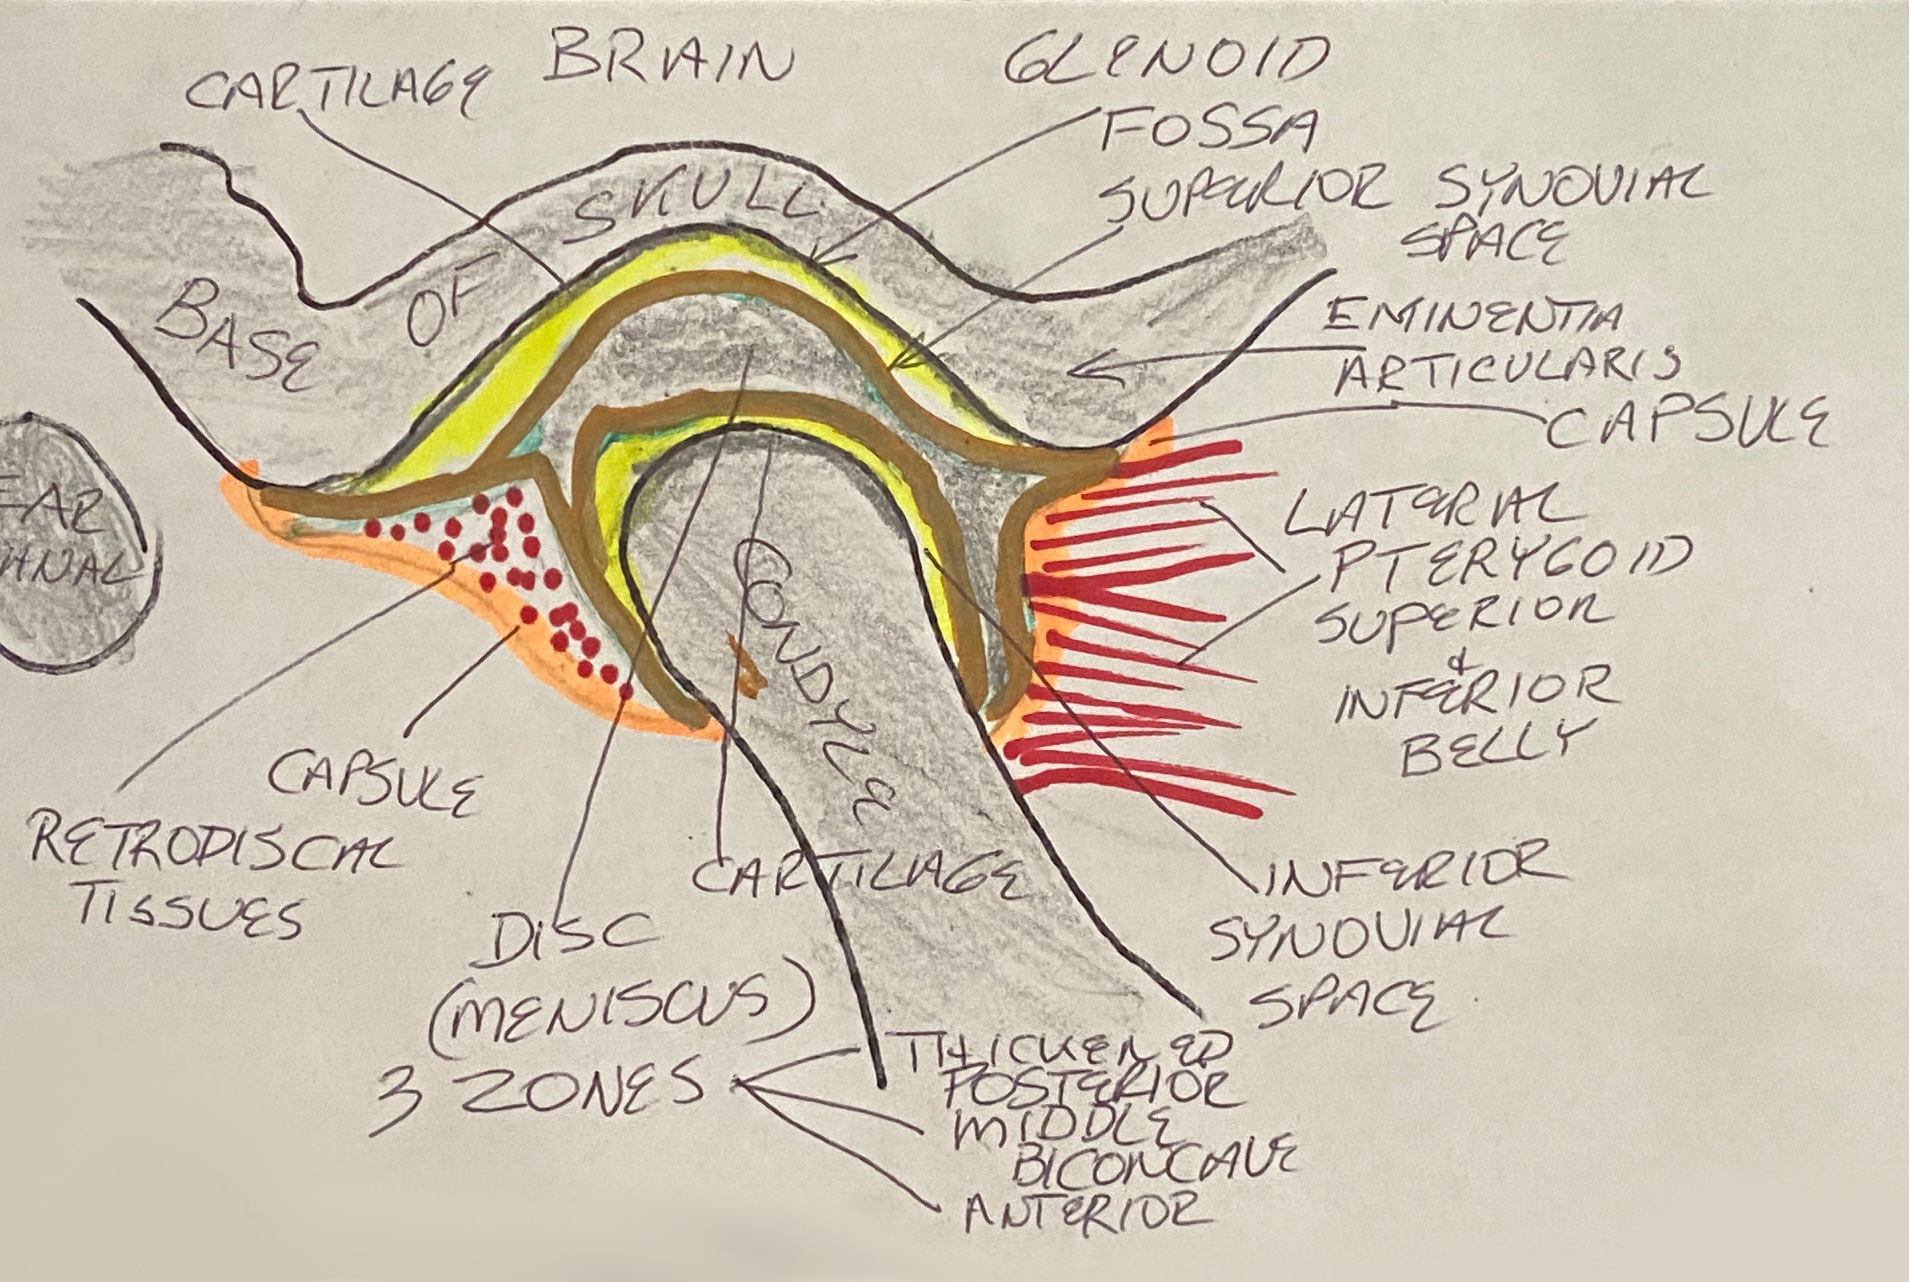 BRAIN
CARTILAGE
GLENOID
FOSSA
SUPERIOR SYNOVIAL
SPACE
BASE OF SKULL
EMINENTIA
ARTICULARIS
CAPSULE
EAR
LATERIAL
PTERYGOID
SUPERIOR
&
INFERIOR
BELLY
CONDYLE
CAPSULE
RETRODISCAL
TISSUES
CARTILAGE
INFERIOR
SYNOVIAL
SPACE
DISC
(MENISCUS)
3 ZONES
THICKENED
POSTERIOR
MIDDLE
BICONCAVE
ANTERIOR